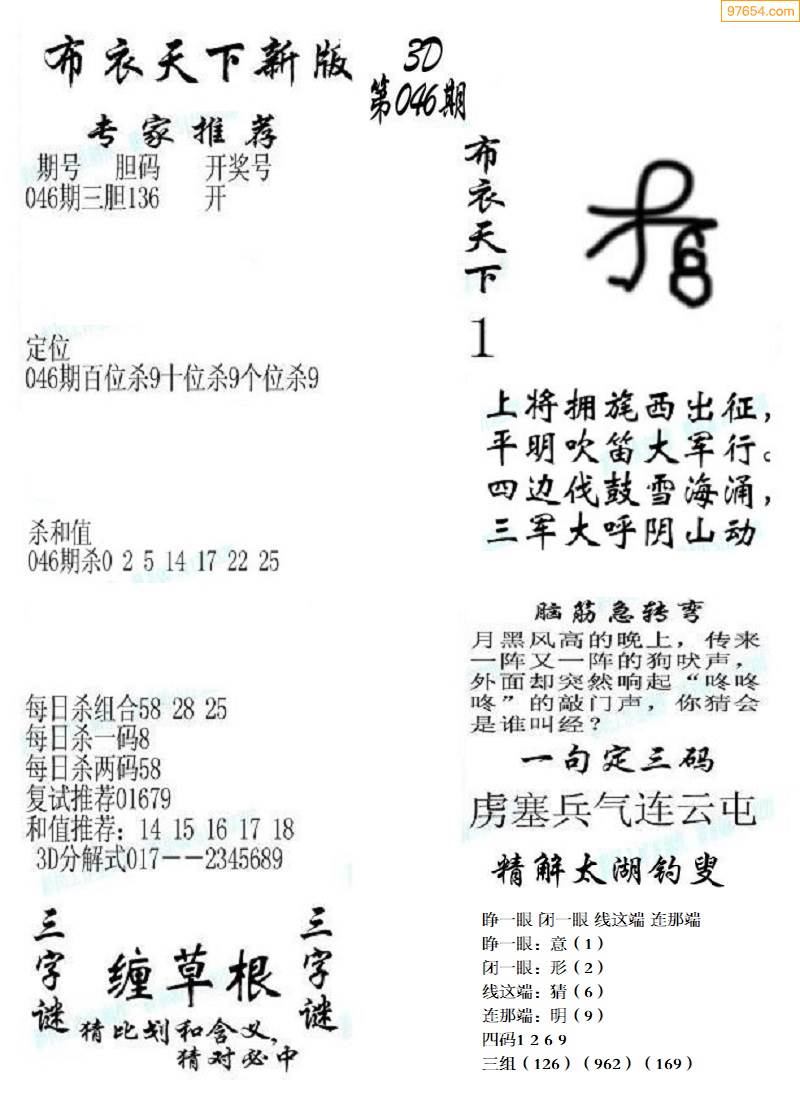 97654.com
布衣天下新版
3D
第046期
专家推荐
期号 胆码 开奖号
046期三胆136 开
定位
046期百位杀9十位杀9个位杀9
杀和值
046期杀0 2 5 14 17 22 25
每日杀组合58 28 25
每日杀一码8
每日杀两码58
复试推荐01679
和值推荐：14 15 16 17 18
3D分解式017--2345689
三字谜
缠草根
三字谜
猜比划和含义，
猜对必中
布衣天下
1
上将拥旄西出征，
平明吹笛大军行。
四边伐鼓雪海涌，
三军大呼阴山动
脑筋急转弯
月黑风高的晚上，传来
一阵又一阵的狗吠声，
外面却突然响起“咚咚
咚”的敲门声，你猜会
是谁叫经？
一句定三码
虏塞兵气连云屯
精解太湖钓叟
睁一眼 闭一眼 线这端 连那端
睁一眼：意（1）
闭一眼：形（2）
线这端：猜（6）
连那端：明（9）
四码1 2 6 9
三组（126）（962）（169）